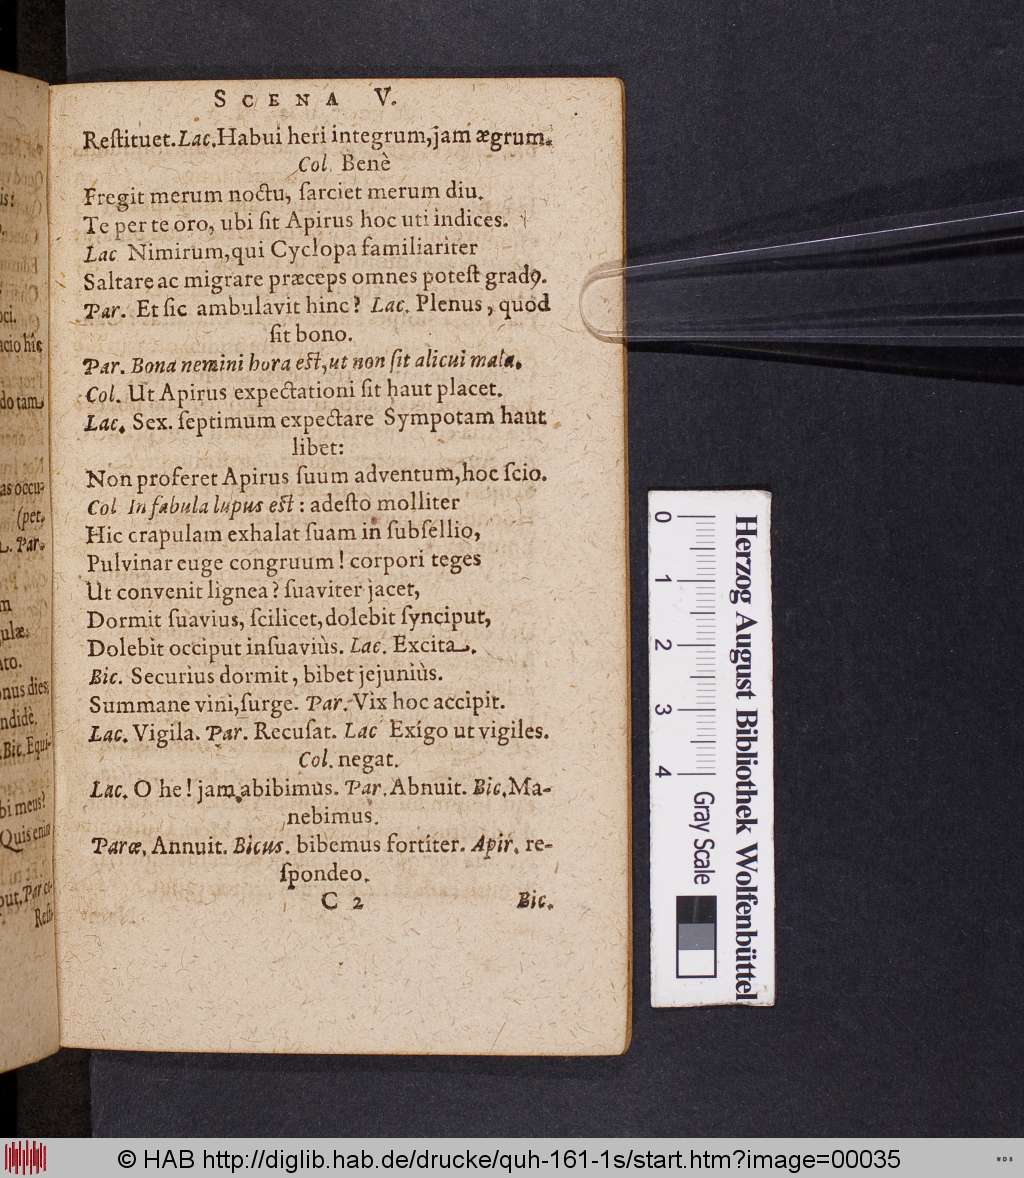 SCENA V.
Reſtituet. Lac. Habui heri integrum, jam ægrum.
Col. Benè
Fregit merum noctu, ſarciet merum diu.
Te per te oro, ubi ſit Apirus hoc uti indices.
Lac Nimirum, qui Cyclopa familiariter
Saltare ac migrare præceps omnes poteſt gradꝰ.
Par. Et ſic ambulavit hinc? Lac. Plenus, quod
ſit bono.
Par. Bona nemini hora eſt, ut non ſit alicui mala.
Col. Ut Apirus expectationi ſit haut placet.
Lac. Sex. ſeptimum expectare Sympotam haut
libet:
Non proferet Apirus ſuum adventum, hoc ſcio.
Col In fabula lupus eſt: adeſto molliter
Hic crapulam exhalat ſuam in ſubſellio,
Pulvinar euge congruum! corpori teges
Ut convenit lignea? ſuaviter jacet,
Dormit ſuavius, ſcilicet, dolebit ſynciput,
Dolebit occiput inſuaviùs. Lac. Excita.
Bic. Securius dormit, bibet jejuniùs.
Summane vini, ſurge. Par. Vix hoc accipit.
Lac. Vigila. Par. Recuſat. Lac Exigo ut vigiles.
Col. negat.
Lac. O he! jam abibimus. Par. Abnuit. Bic. Ma-
nebimus.
Paræ. Annuit. Bicus. bibemus fortiter. Apir. re-
ſpondeo.
C 2 Bic.
is:
oci.
acio hîc
do tam
as occu-
(pet.
Par.
m
ulæ:
ato.
nus dies,
ndidè.
Bic. Equi-
bi meus?
Quis enim
put. Par
Reſti-
0 1 2 3 4
Herzog August Bibliothek Wolfenbüttel
Gray Scale
© HAB http://diglib.hab.de/drucke/quh-161-1s/start.htm?image=00035
WDB